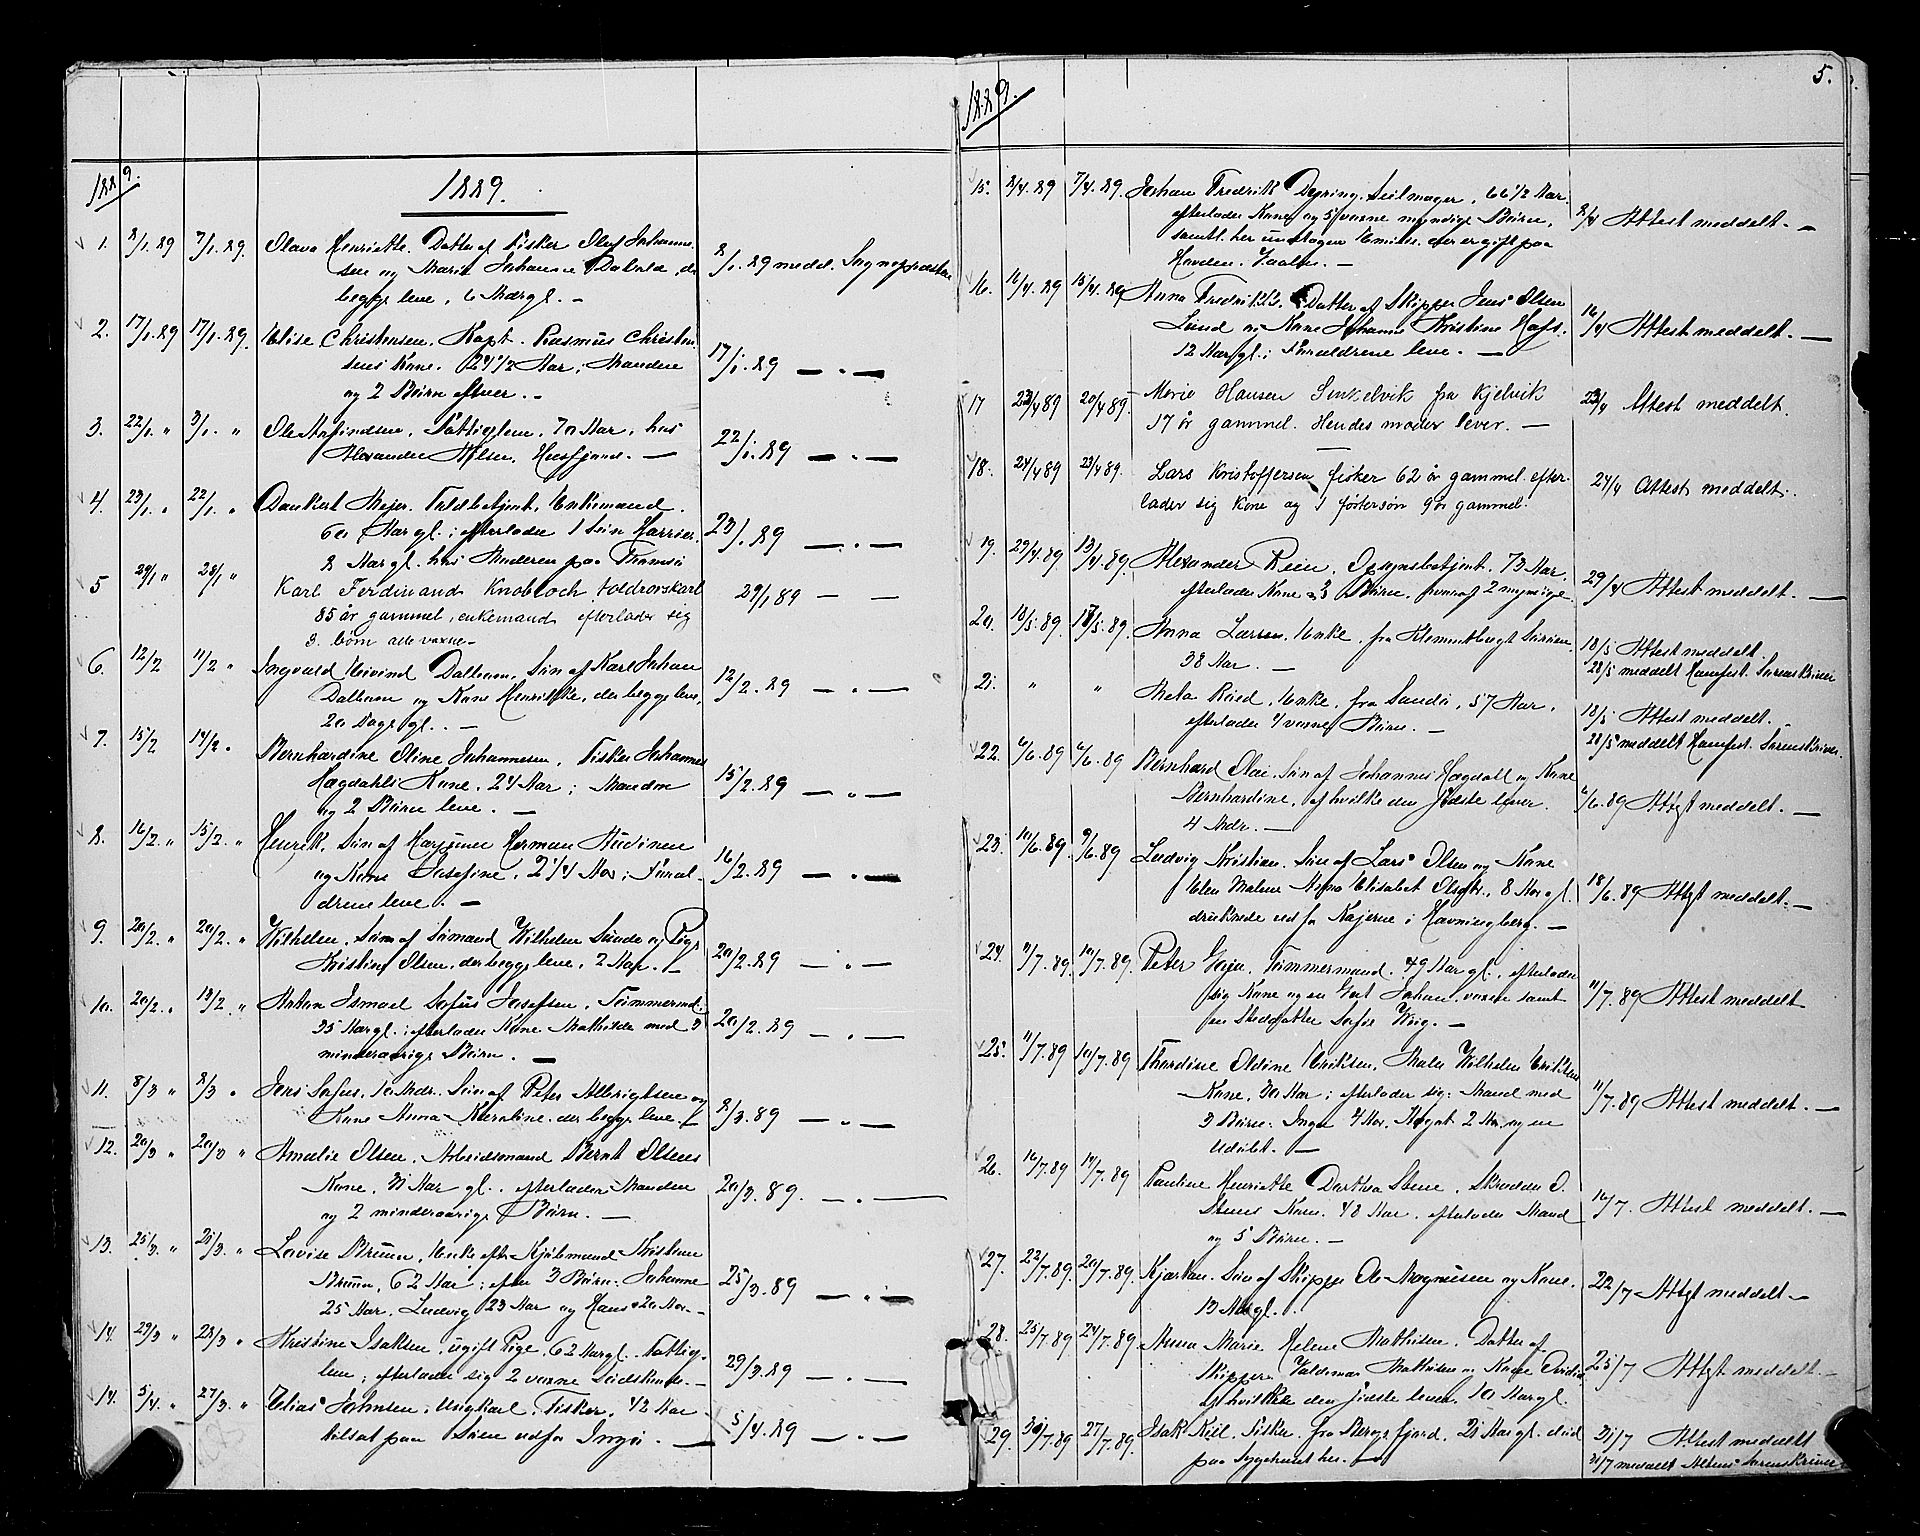 1889.
1889.
1. 8/1.89 7/1.89. Olava Henriette. Datter af Fisker Olaf Johanne-
sen og Marie Johansen Dalvola, de 8/1.89 medd. Sogneprästen
begge leve, 6 Mdr gl. –
2. 17/1.89 17/1.89. Elise Christensen, Kapt. Rasmus Christen-
sens Kone. 24 1/2 Aar, Manden 17/1.89 — " —
og 2 Børn efter. –
3. 22/1. " 3/1. " Ole Arfindsen, Fattiglem, 70 Aar, hos
Alexander Nilsen, Husfjord. — 22/1.89 — " —
4. 23/1. " 22/1. " Dankert Mejer. Toldbetjent, Enkemand.
60 Aar gl.; efterlader 1 Søn Harrier 23/1.89 — " —
8 Aar gl. hos Moderen paa Tromsø
5 29/1 " 28/1 " Karl Ferdinand Knobloch toldrorskarl
85 år gammel, enkemand efterlader sig 29/1 89 — —
3. børn alle voxne –
6. 12/2 11/2 " Ingvald Eivind Dalheim, Søn af Karl Johan
Dalheim og Kone Henrikke, der begge leve, 12/2.89 — " —
20 Dage gl. . –
7. 15/2 14/2 " Bernhardine Oline Johannesen, Fisker Johannes
Hægdahls Kone, 24 Aar; Manden 15/2.89 — " —
og 2 Børn leve. –
8. 16/2. " 15/2. " Henrik, Søn af Herman
og Kone Josefine, 2 1/4 Aar; Foræl- 16/2.89 — " —
drene leve. –
9. 20/2. " 20/2. " Wilhelm, Søn af Sømand Wilhelm Sunde og Pige
Kristine Olsen, der begge leve, 2 Aar. – 20/2.89 — " —
10. 20/2. " 19/2. " Anton Ismael Sofus Josefsen, Tømmermd.
35 Aar gl.; efterlader Kone Mathilde med 3 20/2.89 — " —
mindreaarige Børn. –
11. 8/3 " 8/3 " Jens Sofus, 10 Mdr. Søn af Peter Albrigtsen og
Kone Anna Karoline, der begge leve. – 8/3.89 — " —
12. 20/3 " 20/3 " Amalie Olsen, Arbeidsmand Bernt Olsens
Kone, 31 Aar gl., efterlader Manden 20/3.89. — " —
og 2 mindreaarige Børn. –
13. 25/3. " 25/3. " Lovise Bruun, Enke efter Kjøbmand Kristian
Bruun, 62 Aar; efter 3 Børn: Johanne 25/3.89 — " —
25 Aar, Ludvig 23 Aar og Hans 20 Aar. –
14. 29/3 " 28/3 " Kristine Isaksen, ugift Pige, 62 Aar gl. Fattig-
lem; efterlader sig 2 voxne Sødskende. – 29/3.89 — " —
14. 5/4. " 27/3. " Elias Johnsen, Ungkarl, Fisker, 42 Aar
tilsat paa Søen udfor Ingø. — 5/4.89 — " —
5.
1889.
15. 8/4.89 7/4.89. Johan Fredrik Dyring, Seilmager, 66 1/2 Aar,
efterlader Kone og 5 voxne myndige Børn, 8/4 Attest meddelt. –
samtl. her undtagen Emilie, der er gift paa
Havden. –
16. 16/4.89 15/4.89 Anna Fredrikke. Datter af Skipper Jens Olsen
Lund og Kone Johanne Kristine Hafs. 16/4 Attest meddelt. —
12 Aar gl.; Forældrene leve. –
17 23/4 89 20/4 89. Marie Hansen Sinkelvik fra Kjelvik 23/4 Attest meddelt.
17 år gammel. Hendes moder lever. –
18. 24/4 89 23/4 89. Lars Kristoffersen fisker 62 år gammel. efter- 24/4 Attest meddelt.
lader sig Kone og 1 føstersøn 9 år gammel.
19. 29/4.89 13/4.89. Alexander Rein, Opsynsbetjent. 73 Aar.
efterlader Kone og 3 Børn, hvoraf 2 myndige. 29/4 Attest meddelt. —
20. 18/5.89. 17/5.89. Anna Larsen, Enke, fra
38 Aar. – 18/5 Attest meddelt.
28/5 meddelt Hamfest. Sorenskriver
21. " " Meta Ried, Enke, fra Sandø, 57 Aar,
efterlader 4 voxne Børn. – 18/5 Attest meddelt.
28/5 meddelt Hamfest. Sorenskriver.
22. 6/6.89 6/6.89 Bernhard Olai, Søn af Johannes Hægdahl og Kone
Bernhardine, af hvilke den første lever. 6/6.89 Attest meddelt. –
4 Mdr. –
23. 10/6.89. 9/6.89 Ludvig Kristian. Søn af Lars Olsen og Kone
Elen Malene Anna Elisabet Olsdtr., 8 Aar gl. 18/6.89 Attest meddelt. –
druknede ud fra Kajerne i Havningberg. –
24. 11/7.89. 10/7.89. Peter Geijer, Tømmermand. 49 Aar gl., efterlader
sig Kone og en Søn Johan, voxen samt 11/7.89 Attest meddelt
en Steddatter Sofie Krig. –
25. 11/7.89 10/7.89 Thordine Oldine Eriksen, Maler Wilhelm Eriksens
Kone, 30 Aar; efterlader sig: Mand med 11/7.89 Attest meddelt. —
3 Børn: Inga 4 Aar, Magnt 2 Aar og en
udøbt. –
26. 16/7.89 14/7.89 Pauline Henriette Dorthea Stene, Skrædder O.
Stenes Kone. 48 Aar, efterlader Mand 16/7. Attest meddelt. —
og 5 Børn. –
27. 22/7.89. 20/7.89. Kjartan. Søn af Skipper Ole Magnusen og Kone.
13 Aar gl. . 22/7 Attest meddelt –
28. 25/7.89 24/7.89 Anna Marie Helene Mathisen. Datter af
Skipper Valdemar Mathisen og Kone 25/7 Attest meddelt. –
af hvilke den første lever. 10 Aar gl.
29. 30/7.89 27/7.89. Isak Kiil, Fisker fra Bergsfjord, 21 Aar gl. død 31/7 Attest meddelt
paa Sygehuset her. – 31/7 meddelt Altens Sorenskriver